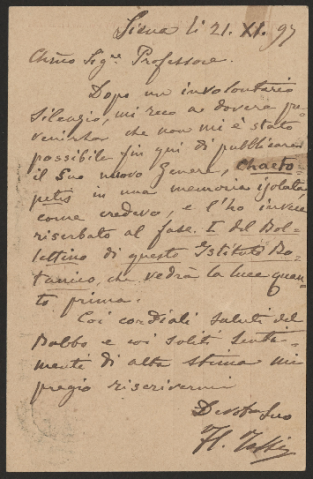 Siena li 21. XI. 97
Chmo Sigr Professore.
Dopo un involontario
silenzio, mi reco a dovere pre-
venirla che non mi è stato
possibile fin qui di pubblicare
il Suo nuovo Genere, Chaeto-
peltis in una memoria isolata,
come credevo, e l'ho invece
riserbato al fasc. I del Bol-
lettino di questo Istituto Bo-
tanico, che vedrà la luce quan-
to prima.
Coi cordiali saluti del
Babbo e coi soliti senti-
menti di alta stima mi
pregio riscrivermi
Devotmo Suo
Fl. Tassi